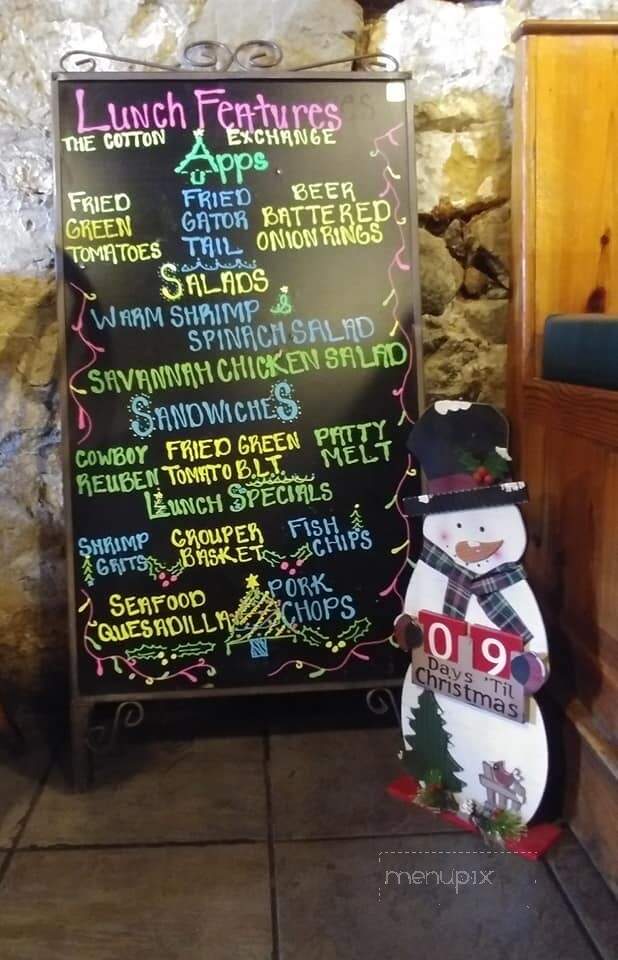 LUNCH FEATURES
THE COTTON EXCHANGE
APPS
FRIED
GREEN
TOMATOES
FRIED
GATOR
TAIL
BEER
BATTERED
ONION RINGS
SALADS
WARM SHRIMP
SPINACH SALAD
SAVANNAH CHICKEN SALAD
SANDWICHES
COWBOY
REUBEN
FRIED GREEN
TOMATO B.L.T.
PATTY
MELT
LUNCH SPECIALS
SHRIMP
GRITS
GROUPER
BASKET
FISH
CHIPS
SEAFOOD
QUESADILLA
PORK
CHOPS
09
Days 'Til
Christmas
menupix